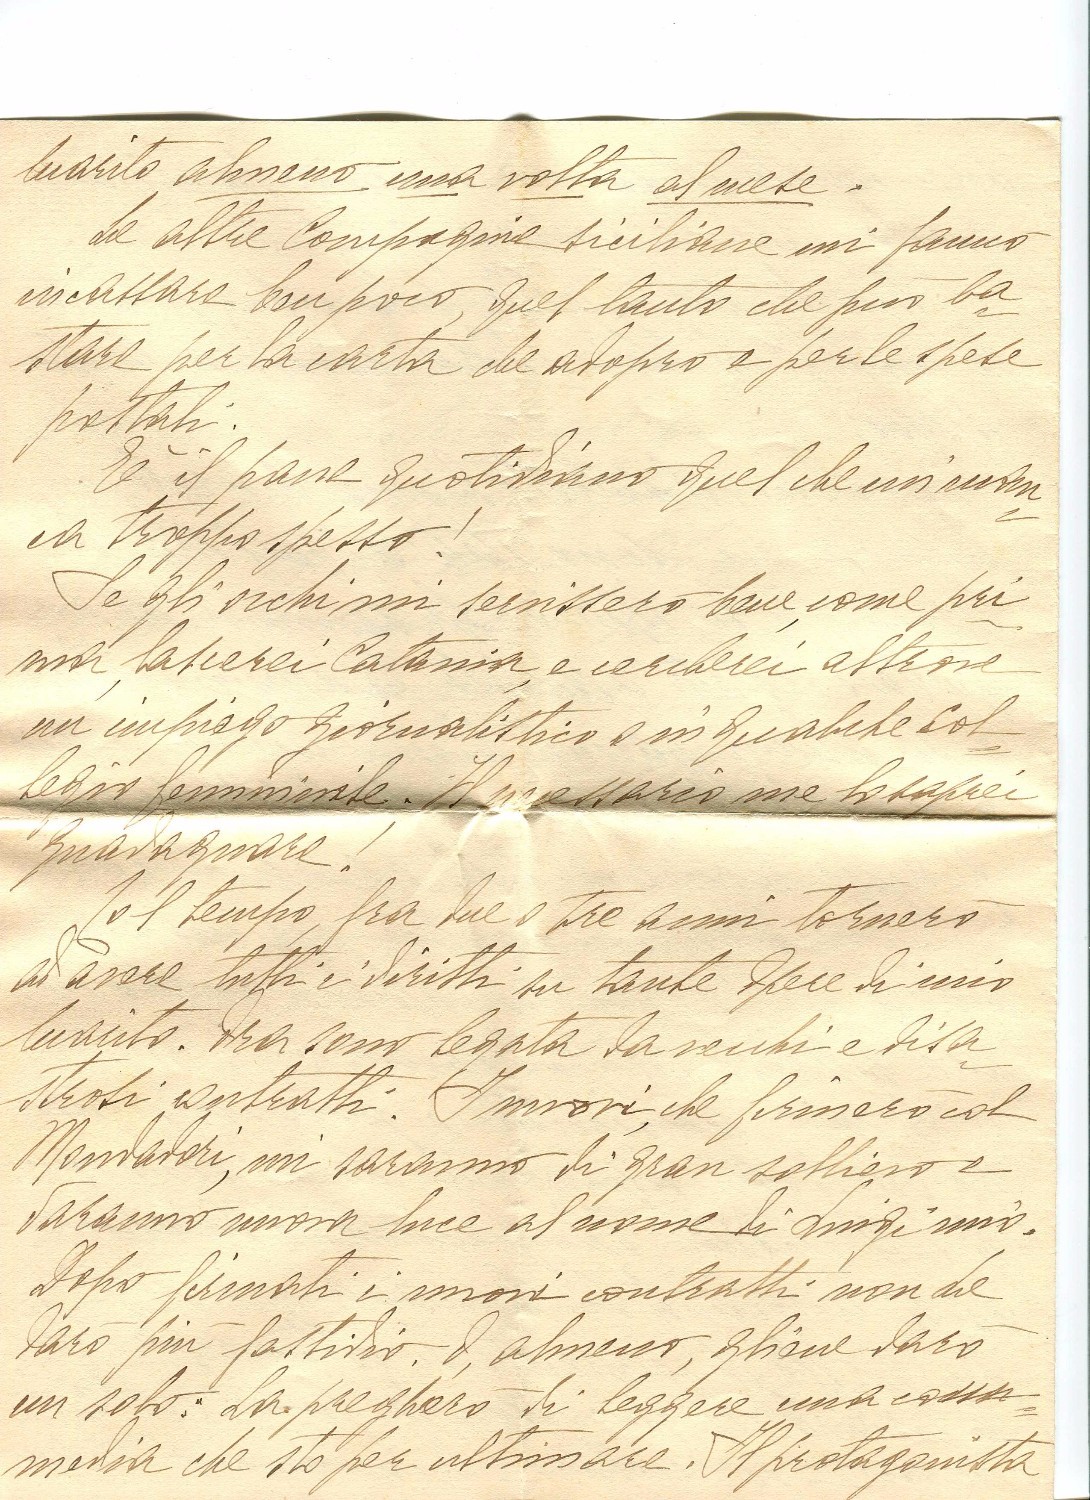 marito almeno una volta al mese.
Le altre Compagnie siciliane mi fanno
incassare ben poco, quel tanto che può ba=
stare per la carta che adopro e per le spese
postali.
È il pane quotidiano quel che mi man=
ca troppo spesso!
Se gli occhi mi servissero bene, come pri=
ma, lascerei Catania, e cercherei altrove
un impiego giornalistico o in qualche Col=
legio femminile. Il necessario me lo saprei
guadagnare!
Col tempo, fra due o tre anni tornerò
ad avere tutti i diritti su tante opere di mio
marito. Ora sono legata da vecchi e disa=
strosi contratti. I nuovi, che firmerò col
Mondadori, mi saranno di gran sollievo e
daranno nuova luce al nome di Luigi mio.
Dopo firmati i nuovi contratti non Le
darò più fastidio. O, almeno, gliene darò
un solo: La pregherò di leggere una com=
media che sto per ultimare. Il protagonista